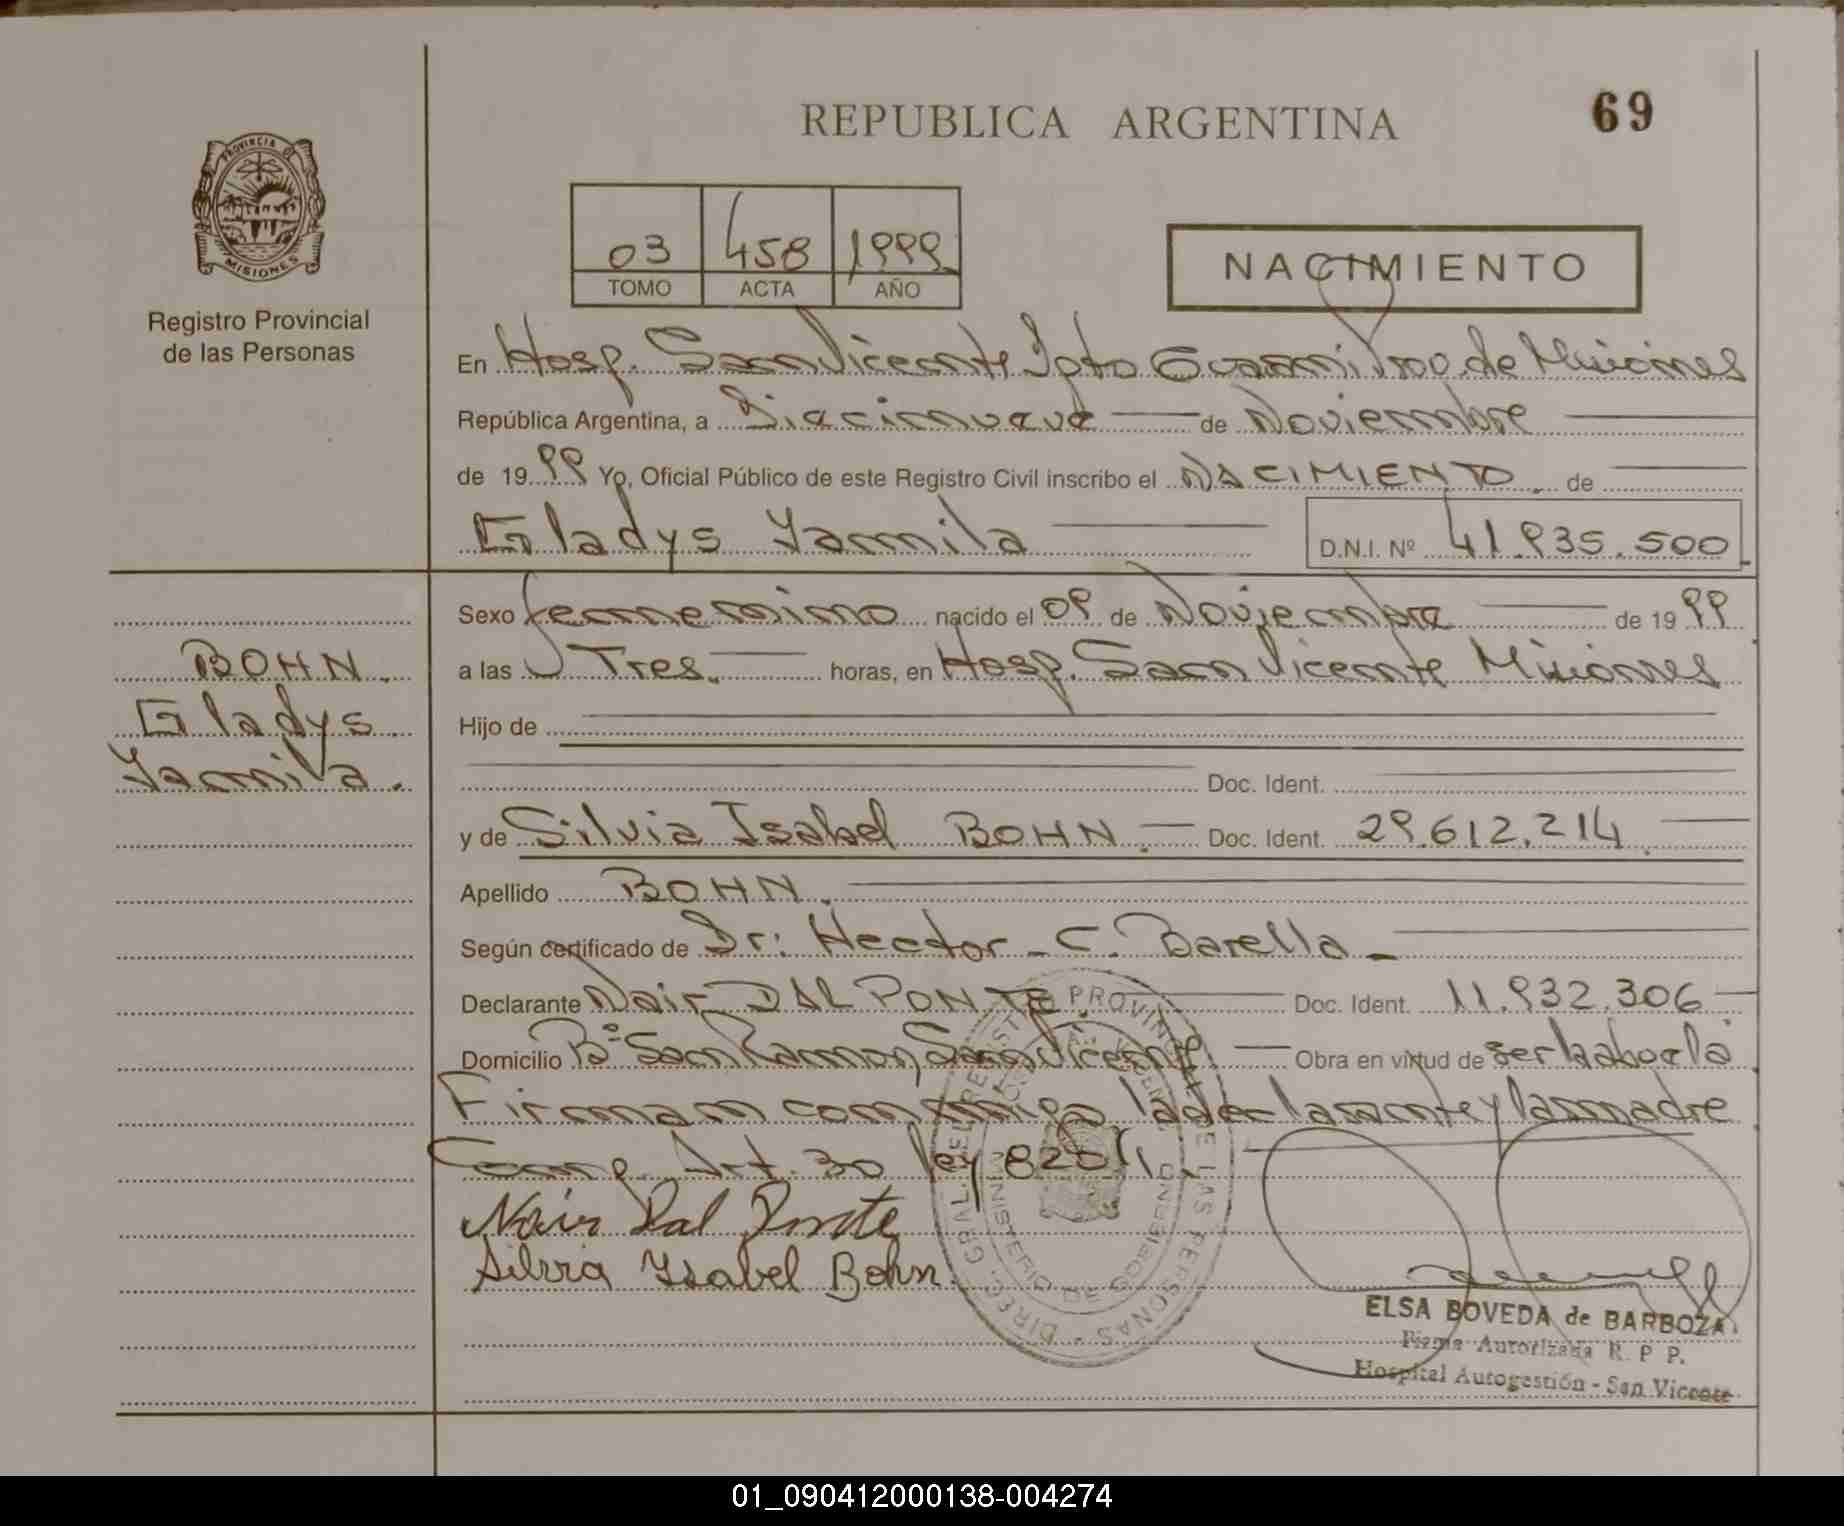 REPUBLICA ARGENTINA
69
PROVINCIA DE
MISIONES
Registro Provincial
de las Personas
03 458 1999
TOMO ACTA AÑO
NACIMIENTO
En Hosp. San Vicente Dpto Guarni de Misiones
República Argentina, a Diecinueve de Noviembre
de 1999 Yo, Oficial Público de este Registro Civil inscribo el NACIMIENTO de
Gladys Yamila
D.N.I. Nº 41.935.500
BOHN.
Gladys
Yamila.
Sexo femenino nacido el 09 de Noviembre de 1999
a las Tres. horas, en Hosp. San Vicente Misiones
Hijo de
Doc. Ident.
y de Silvia Isabel BOHN. Doc. Ident. 29.612.214
Apellido BOHN.
Según certificado de Dr: Hector - C. Barella -
Declarante Nair DAL PONTE Doc. Ident. 11.932.306
Domicilio Bº San Ramon, San Vicente Obra en virtud de ser
Firman conmigo la declarante y la madre
Comp. Art. 30 ley 8204
Nair Dal Ponte
Silvia Ysabel Bohn.
DIREC. GRAL. DEL REGISTRO PROVINCIAL DE LAS PERSONAS
MINISTERIO DE GOBIERNO
ELSA BOVEDA de BARBOZA
Firma Autorizada R. P P.
Hospital Autogestión - San Vicente
01_090412000138-004274